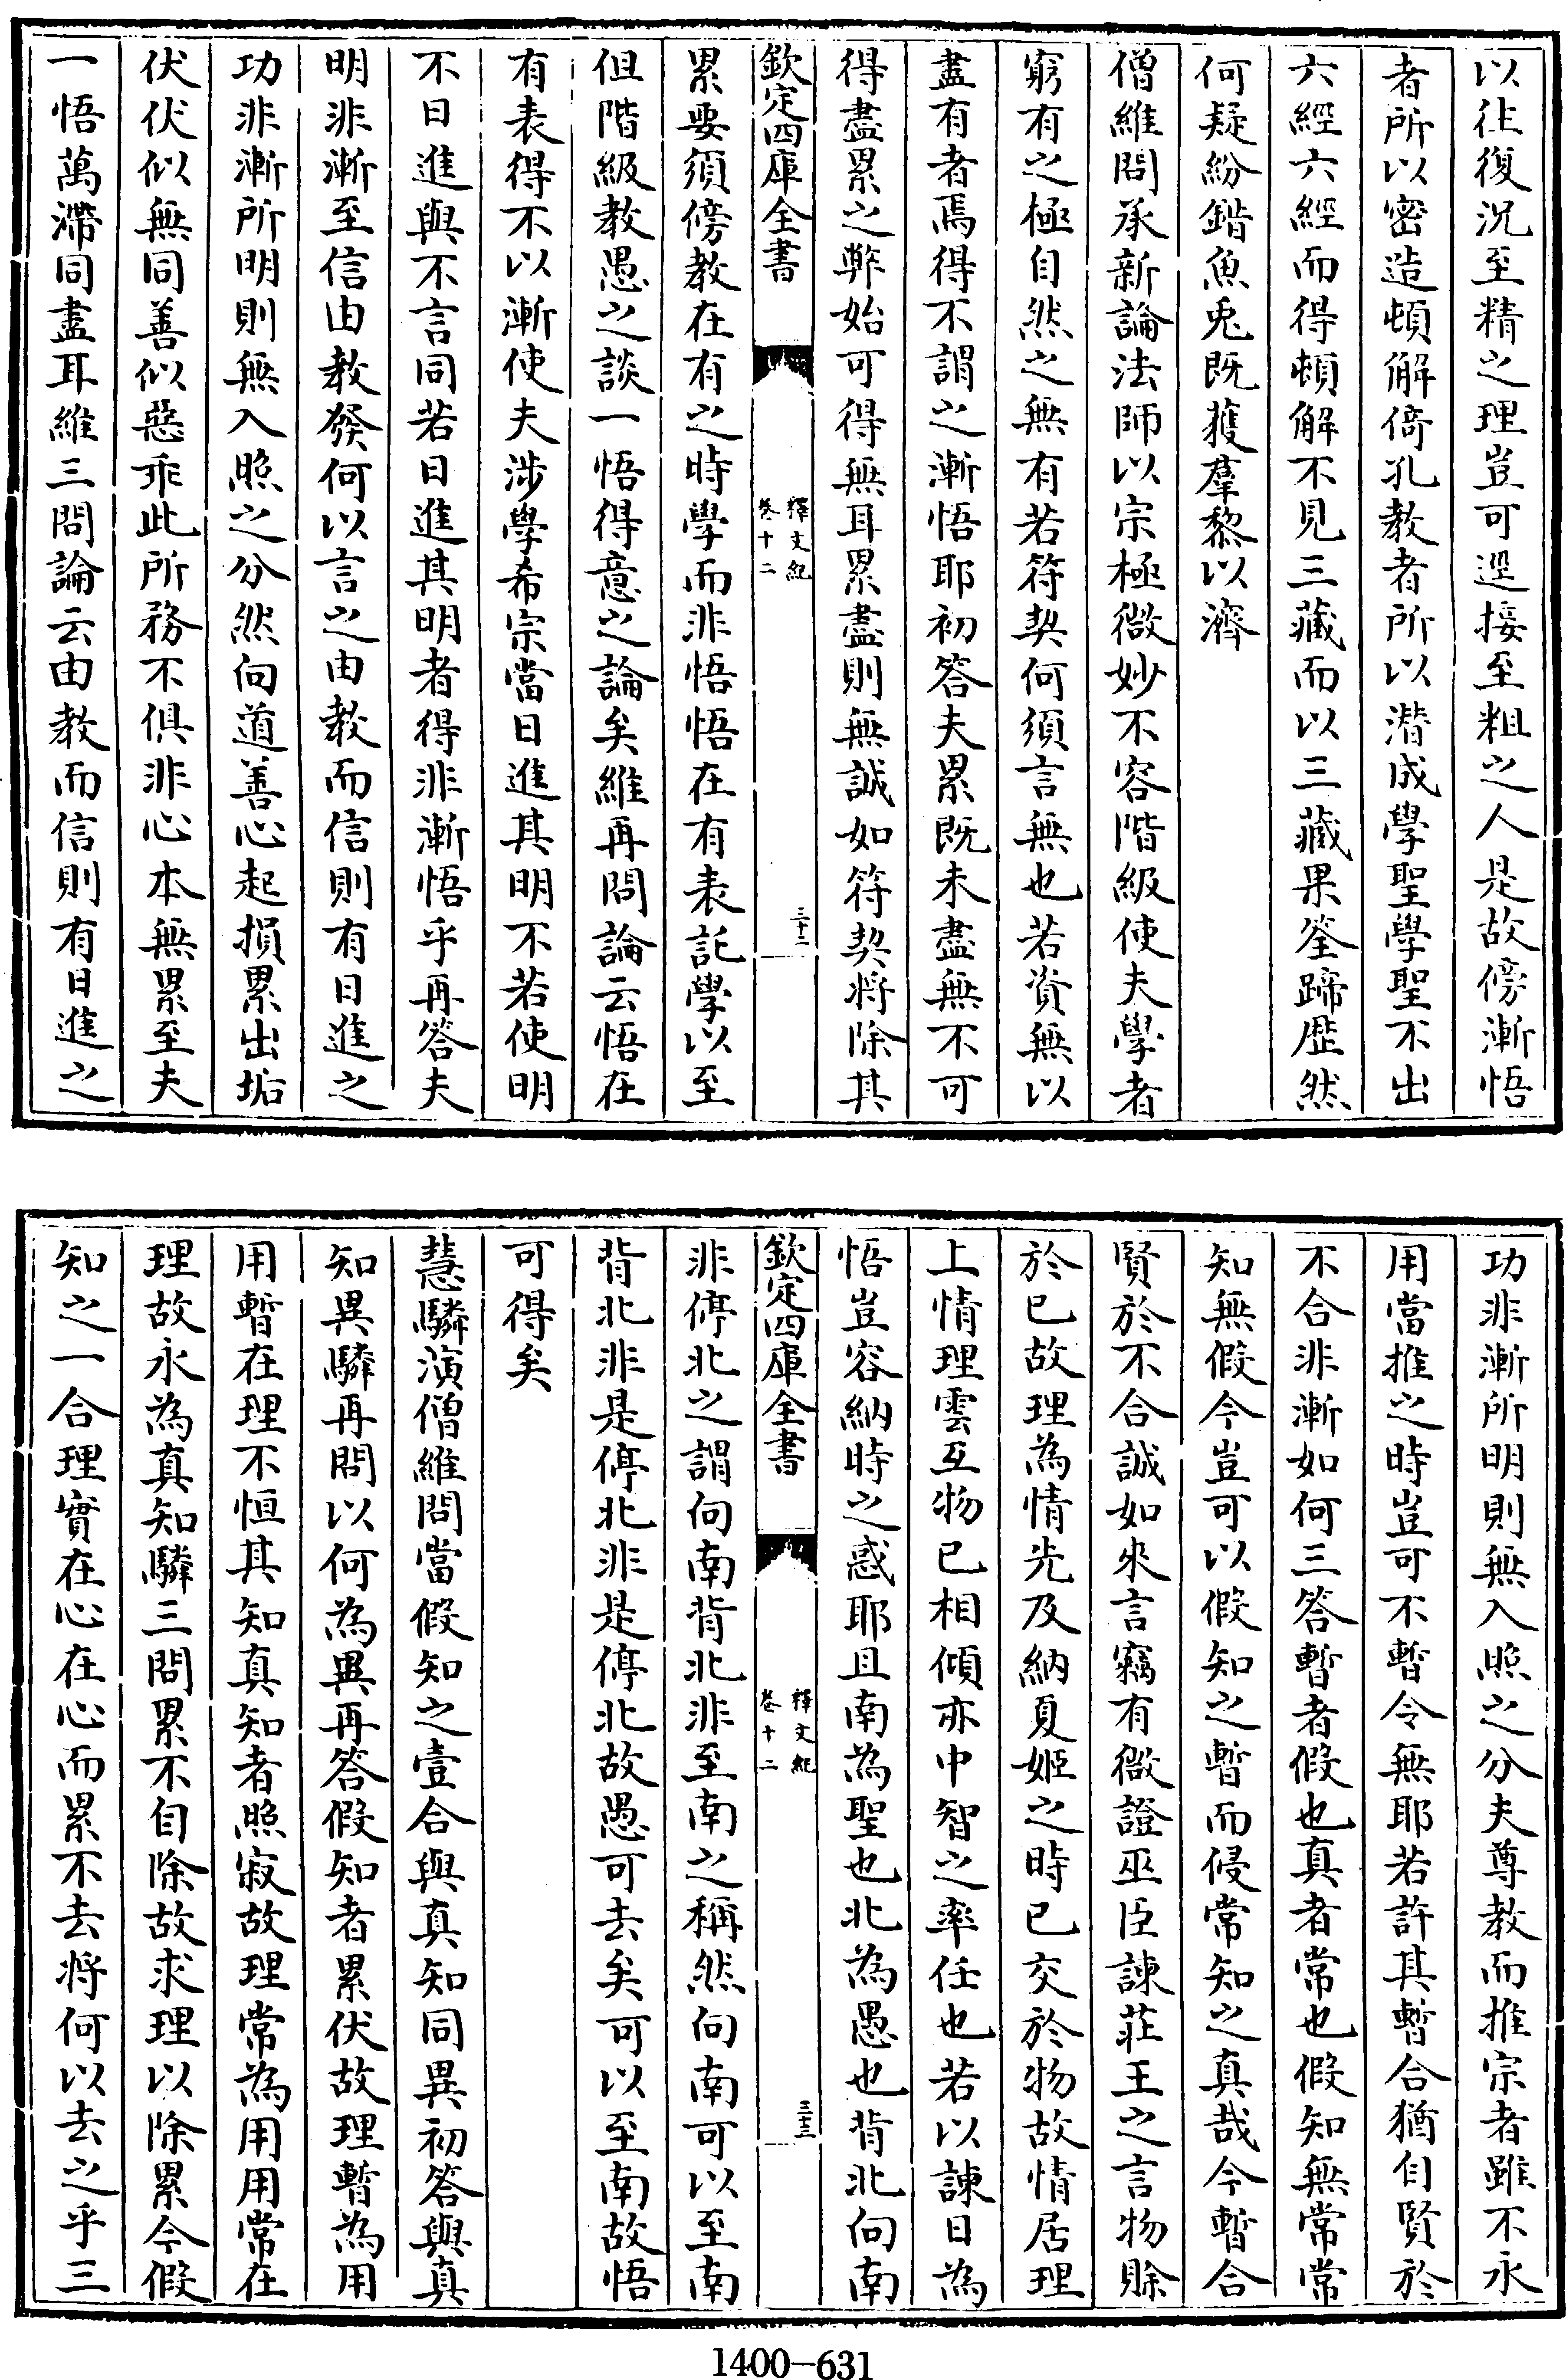 以往復況至精之理豈可逕接至粗之人是故傍漸悟
者所以密造頓解倚孔教者所以潛成學聖學聖不出
六經六經而得頓解不見三藏而以三藏果筌蹄歷然
何疑紛錯魚兎既獲羣黎以濟
僧維問承新論法師以宗極微妙不容階級使夫學者
窮有之極自然之無有若符契何須言無也若資無以
盡有者焉得不謂之漸悟耶初答夫累既未盡無不可
得盡累之弊始可得無耳累盡則無誠如符契將除其
欽定四庫全書
釋文紀
卷十二
三十二
累要須傍教在有之時學而非悟悟在有表託學以至
但階級教愚之談一悟得意之論矣維再問論云悟在
有表得不以漸使夫涉學希宗當日進其明不若使明
不日進與不言同若日進其明者得非漸悟乎再答夫
明非漸至信由教發何以言之由教而信則有日進之
功非漸所明則無入照之分然向道善心起損累出垢
伏伏似無同善似惡乖此所務不俱非心本無累至夫
一悟萬滯同盡耳維三問論云由教而信則有日進之
功非漸所明則無入照之分夫尊教而推宗者雖不永
用當推之時豈可不暫令無耶若許其暫合猶自賢於
不合非漸如何三答暫者假也真者常也假知無常常
知無假今豈可以假知之暫而侵常知之真哉今暫合
賢於不合誠如來言竊有微證巫臣諫莊王之言物賒
於已故理為情先及納夏姬之時已交於物故情居理
上情理雲互物已相傾亦中智之率任也若以諫日為
悟豈容納時之惑耶且南為聖也北為愚也背北向南
欽定四庫全書
釋文紀
卷十二
三十三
非停北之謂向南背北非至南之稱然向南可以至南
背北非是停北非是停北故愚可去矣可以至南故悟
可得矣
慧驎演僧維問當假知之壹合與真知同異初答與真
知異驎再問以何為異再答假知者累伏故理暫為用
用暫在理不恒其知真知者照寂故理常為用用常在
理故永為真知驎三問累不自除故求理以除累今假
知之一合理實在心在心而累不去將何以去之乎三
1400-631